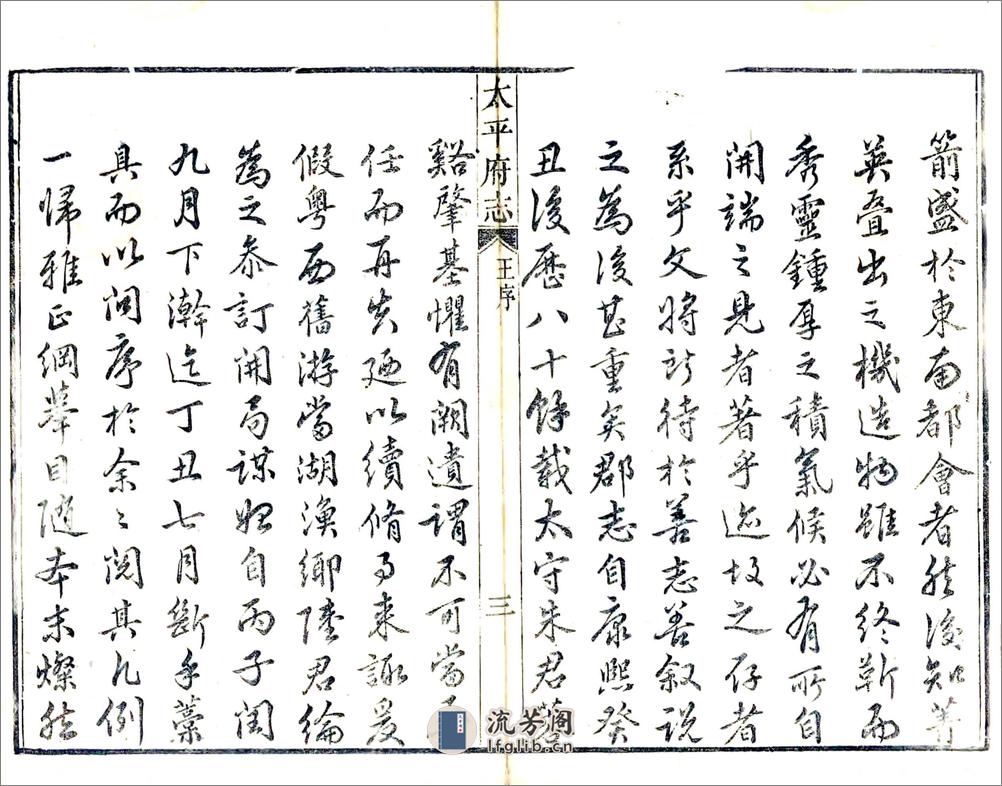 箭盛於東南都會者然後知菁
英叠出之機造物雖不終靳而
秀靈鍾厚之積氣候必有所自
開端之見者著乎迹故之存者
系乎文將所待於善志善叙說
之為後甚重矣郡志自康熙癸
丑後歷八十餘載太守朱君
太平府志
王序
三
谿肇基懼有闕遺謂不可當
任而再失廼以續脩事来諏爰
假粵西舊游當湖漁鄉陸君綸
為之叅訂開局謀始自丙子閏
九月下澣迄丁丑七月斷手藁
具而以問序於余〻閱其凡例
一歸雅正綱舉目随本末燦然
流芳阁
lfglib.cn